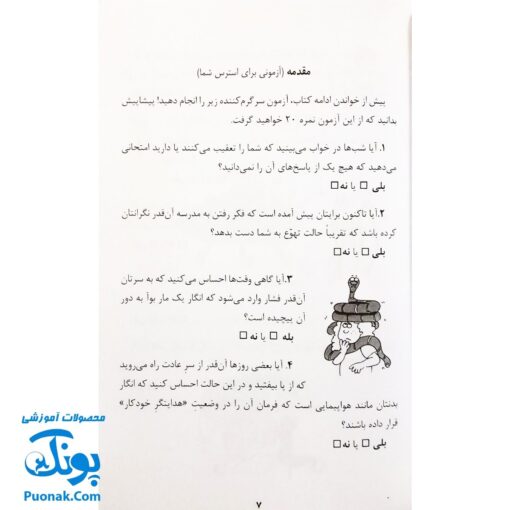 مقدمه (آزمونی برای استرس شما)
پیش از خواندن ادامه کتاب، آزمون سرگرم‌کننده زیر را انجام دهید! پیشاپیش
بدانید که از این آزمون نمره ۲۰ خواهید گرفت.
۱. آیا شب‌ها در خواب می‌بینید که شما را تعقیب می‌کنند یا دارید امتحانی
می‌دهید که هیچ یک از پاسخ‌های آن را نمی‌دانید؟
بلی □ یا نه□
۲.آیا تاکنون برایتان پیش آمده است که فکر رفتن به مدرسه آن‌قدر نگرانتان
کرده باشد که تقریباً حالت تهوّع به شما دست بدهد؟
بلی □ یا نه□
۳.آیا گاهی وقت‌ها احساس می‌کنید که به سرتان
آن‌قدر فشار وارد می‌شود که انگار یک مار بوآ به دور
آن پیچیده است؟
بله □ یا نه □
۴. آیا بعضی روزها آن‌قدر از سر عادت راه می‌روید
که از پا بیفتید و در این حالت احساس کنید که انگار
بدنتان مانند هواپیمایی است که فرمان آن را در وضعیت «هدایتگر خودکار»
قرار داده باشند؟
بلی □ یا نه□
محصولات آموزشی
پونک
Puonak.Com
۷